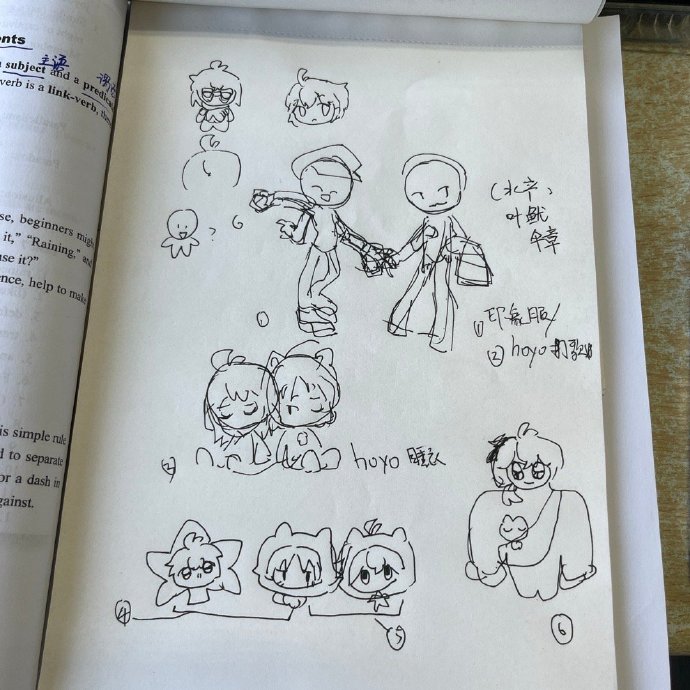 ents
subject 主语 and a predica
verb is a link-verb,
se, beginners migh
it," "Raining," and
use it?"
ence, help to make
is simple rule
d to separate
or a dash in
gainst.
? 6
(水产、
叶鱿
伞章
①
①印象服/
② hoyo
③ hoyo 睡衣
④
⑤
⑥